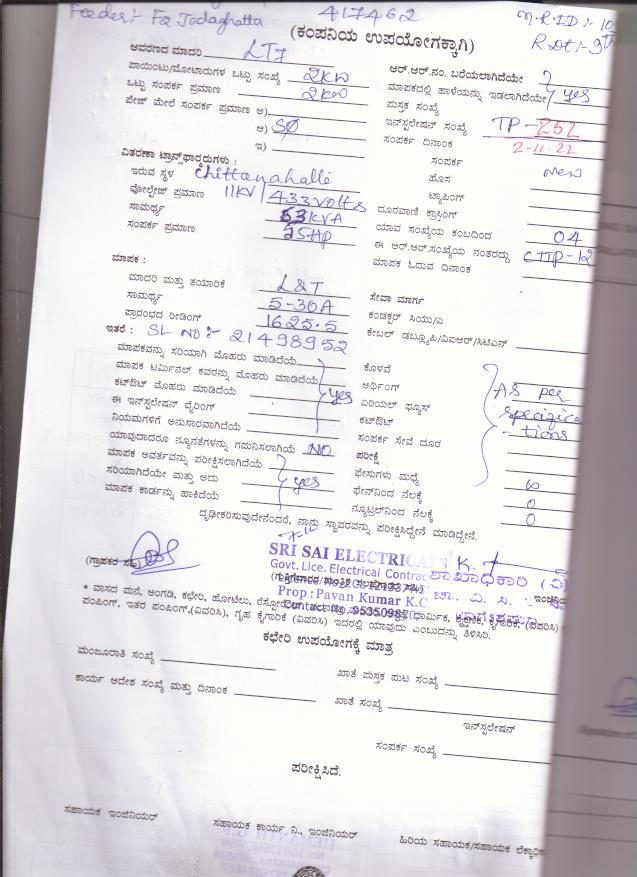 Feeder:- F2 Jodaghatta 417462 M.RID:- 10
(ಕಂಪನಿಯ ಉಪಯೋಗಕ್ಕಾಗಿ) RDt:- 9th
ಆವರಣದ ಮಾದರಿ LT7 ಆರ್.ಆರ್.ನಂ. ಬರೆಯಲಾಗಿದೆಯೇ
ಪಾಯಿಂಟು/ಮೋಟಾರುಗಳ ಒಟ್ಟು ಸಂಖ್ಯೆ 2KW ಮಾಪಕದಲ್ಲಿ ಹಾಳೆಯನ್ನು ಇಡಲಾಗಿದೆಯೇ yes
ಒಟ್ಟು ಸಂಪರ್ಕ ಪ್ರಮಾಣ 2KW ಪುಸ್ತಕ ಸಂಖ್ಯೆ
ಪೇಜ್ ಮೇಲೆ ಸಂಪರ್ಕ ಪ್ರಮಾಣ ಅ) ಇನ್‌ಸ್ಟಲೇಷನ್ ಸಂಖ್ಯೆ TP-252
ಆ) SØ ಸಂಪರ್ಕ ದಿನಾಂಕ 2-11-22
ಇ) ಸಂಪರ್ಕ
ವಿತರಣಾ ಟ್ರಾನ್ಸ್‌ಫಾರ್‍ಮರುಗಳು : ಹೊಸ new
ಇರುವ ಸ್ಥಳ Chittanahalli ಟ್ಯಾಪಿಂಗ್
ವೋಲ್ಟೇಜ್ ಪ್ರಮಾಣ 11KV/433volts ದೂರವಾಣಿ ಕ್ರಾಸಿಂಗ್
ಸಾಮರ್ಥ್ಯ 63KVA ಯಾವ ಸಂಖ್ಯೆಯ ಕಂಬದಿಂದ 04
ಸಂಪರ್ಕ ಪ್ರಮಾಣ 75HP ಈ ಆರ್.ಆರ್.ಸಂಖ್ಯೆಯ ನಂತರದ್ದು CTTP-12
ಮಾಪಕ ಓದುವ ದಿನಾಂಕ
ಮಾಪಕ :
ಮಾದರಿ ಮತ್ತು ತಯಾರಿಕೆ L&T ಸೇವಾ ಮಾರ್ಗ
ಸಾಮರ್ಥ್ಯ 5-30A ಕಂಡಕ್ಟರ್ ಸಿಯು/ಎ
ಪ್ರಾರಂಭದ ರೀಡಿಂಗ್ 1625.5 ಕೇಬಲ್ ಡಬ್ಲ್ಯೂಪಿ/ವಿಐಆರ್/ಸಿಟಿಎಸ್
ಇತರೆ : SL NO:- 21498952
ಮಾಪಕವನ್ನು ಸರಿಯಾಗಿ ಮೊಹರು ಮಾಡಿದೆಯೆ ಕೊಳವೆ
ಮಾಪಕ ಟರ್ಮಿನಲ್ ಕವರನ್ನು ಮೊಹರು ಮಾಡಿದೆಯೆ ಅರ್ಥಿಂಗ್ As per
ಕಟ್‌ಔಟ್ ಮೊಹರು ಮಾಡಿದೆಯೆ yes ಏರಿಯಲ್ ಫ್ಯೂಸ್ specifica
ಈ ಇನ್‌ಸ್ಟಲೇಷನ್ ವೈರಿಂಗ್ ಕಟ್‌ಔಟ್ -tions
ನಿಯಮಗಳಿಗೆ ಅನುಸಾರವಾಗಿದೆಯೆ ಸಂಪರ್ಕ ಸೇವೆ ದೂರ
ಯಾವುದಾದರೂ ನ್ಯೂನತೆಗಳನ್ನು ಗಮನಿಸಲಾಗಿಯೆ NO ಪರೀಕ್ಷೆ
ಮಾಪಕ ಆವರ್ತವನ್ನು ಪರೀಕ್ಷಿಸಲಾಗಿದೆಯೆ ಫೇಸುಗಳು ಮಧ್ಯೆ ∞
ಸರಿಯಾಗಿದೆಯೇ ಮತ್ತು ಅದು yes ಫೇಸ್‌ನಿಂದ ನೆಲಕ್ಕೆ 0
ಮಾಪಕ ಕಾರ್ಡನ್ನು ಹಾಕಿದೆಯೆ ನ್ಯೂಟ್ರಲ್‌ನಿಂದ ನೆಲಕ್ಕೆ 0
ದೃಢೀಕರಿಸುವುದೇನೆಂದರೆ, ನಾನು ಸ್ಥಾವರವನ್ನು ಪರೀಕ್ಷಿಸಿದ್ದೇನೆ ಮಾಡಿದ್ದೇನೆ.
SRI SAI ELECTRICALS
Govt. Lice. Electrical Contrac ಶಾಖಾಧಿಕಾರಿ (ವಿ)
(ಗ್ರಾಹಕರ ಸಹಿ)
Prop : Pavan Kumar K.C
* ವಾಸದ ಮನೆ, ಅಂಗಡಿ, ಕಛೇರಿ, ಹೋಟೆಲು, ಧಾರ್ಮಿಕ, ಶೈಕ್ಷಣಿಕ, ಕೈಗಾರಿಕೆ, (ವಿವರಿಸಿ)
ಪಂಪಿಂಗ್, ಇತರ ಪಂಪಿಂಗ್,(ವಿವರಿಸಿ), ಗೃಹ ಕೈಗಾರಿಕೆ (ವಿವರಿಸಿ) ಇದರಲ್ಲಿ ಯಾವುದು ಎಂಬುದನ್ನು ತಿಳಿಸಿರಿ.
ಕಛೇರಿ ಉಪಯೋಗಕ್ಕೆ ಮಾತ್ರ
ಮಂಜೂರಾತಿ ಸಂಖ್ಯೆ ಖಾತೆ ಪುಸ್ತಕ ಪುಟ ಸಂಖ್ಯೆ
ಕಾರ್ಯ ಆದೇಶ ಸಂಖ್ಯೆ ಮತ್ತು ದಿನಾಂಕ ಖಾತೆ ಸಂಖ್ಯೆ
ಇನ್‌ಸ್ಟಲೇಷನ್
ಸಂಪರ್ಕ ಸಂಖ್ಯೆ
ಪರೀಕ್ಷಿಸಿದೆ.
ಸಹಾಯಕ ಇಂಜಿನಿಯರ್ ಸಹಾಯಕ ಕಾರ್ಯ ನಿ., ಇಂಜಿನಿಯರ್ ಹಿರಿಯ ಸಹಾಯಕ/ಸಹಾಯಕ